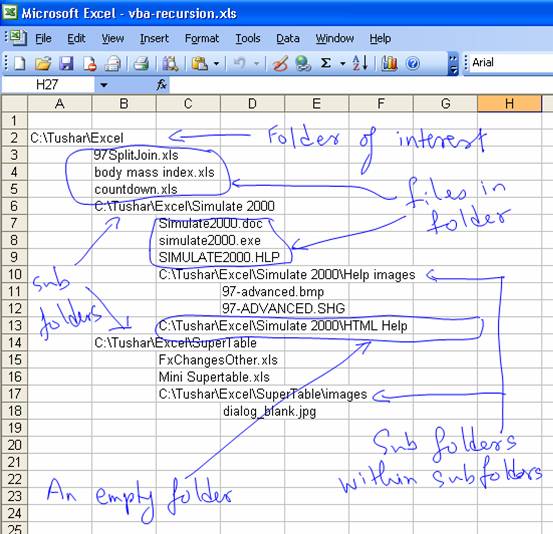 Microsoft Excel - vba-recursion.xls
File Edit View Insert Format Tools Data Window Help
Arial
H27 fx
A B C D E F G H
1
2 C:\Tushar\Excel Folder of interest
3 97SplitJoin.xls
4 body mass index.xls
5 countdown.xls files in
6 C:\Tushar\Excel\Simulate 2000 folder
7 Simulate2000.doc
8 simulate2000.exe
9 SIMULATE2000.HLP
10 C:\Tushar\Excel\Simulate 2000\Help images
sub
11 97-advanced.bmp
12 97-ADVANCED.SHG
folders
13 C:\Tushar\Excel\Simulate 2000\HTML Help
14 C:\Tushar\Excel\SuperTable
15 FxChangesOther.xls
16 Mini Supertable.xls
17 C:\Tushar\Excel\SuperTable\images
18 dialog_blank.jpg
19
20 Sub folders
21
22 within subfolders
23 An empty folder
24
25